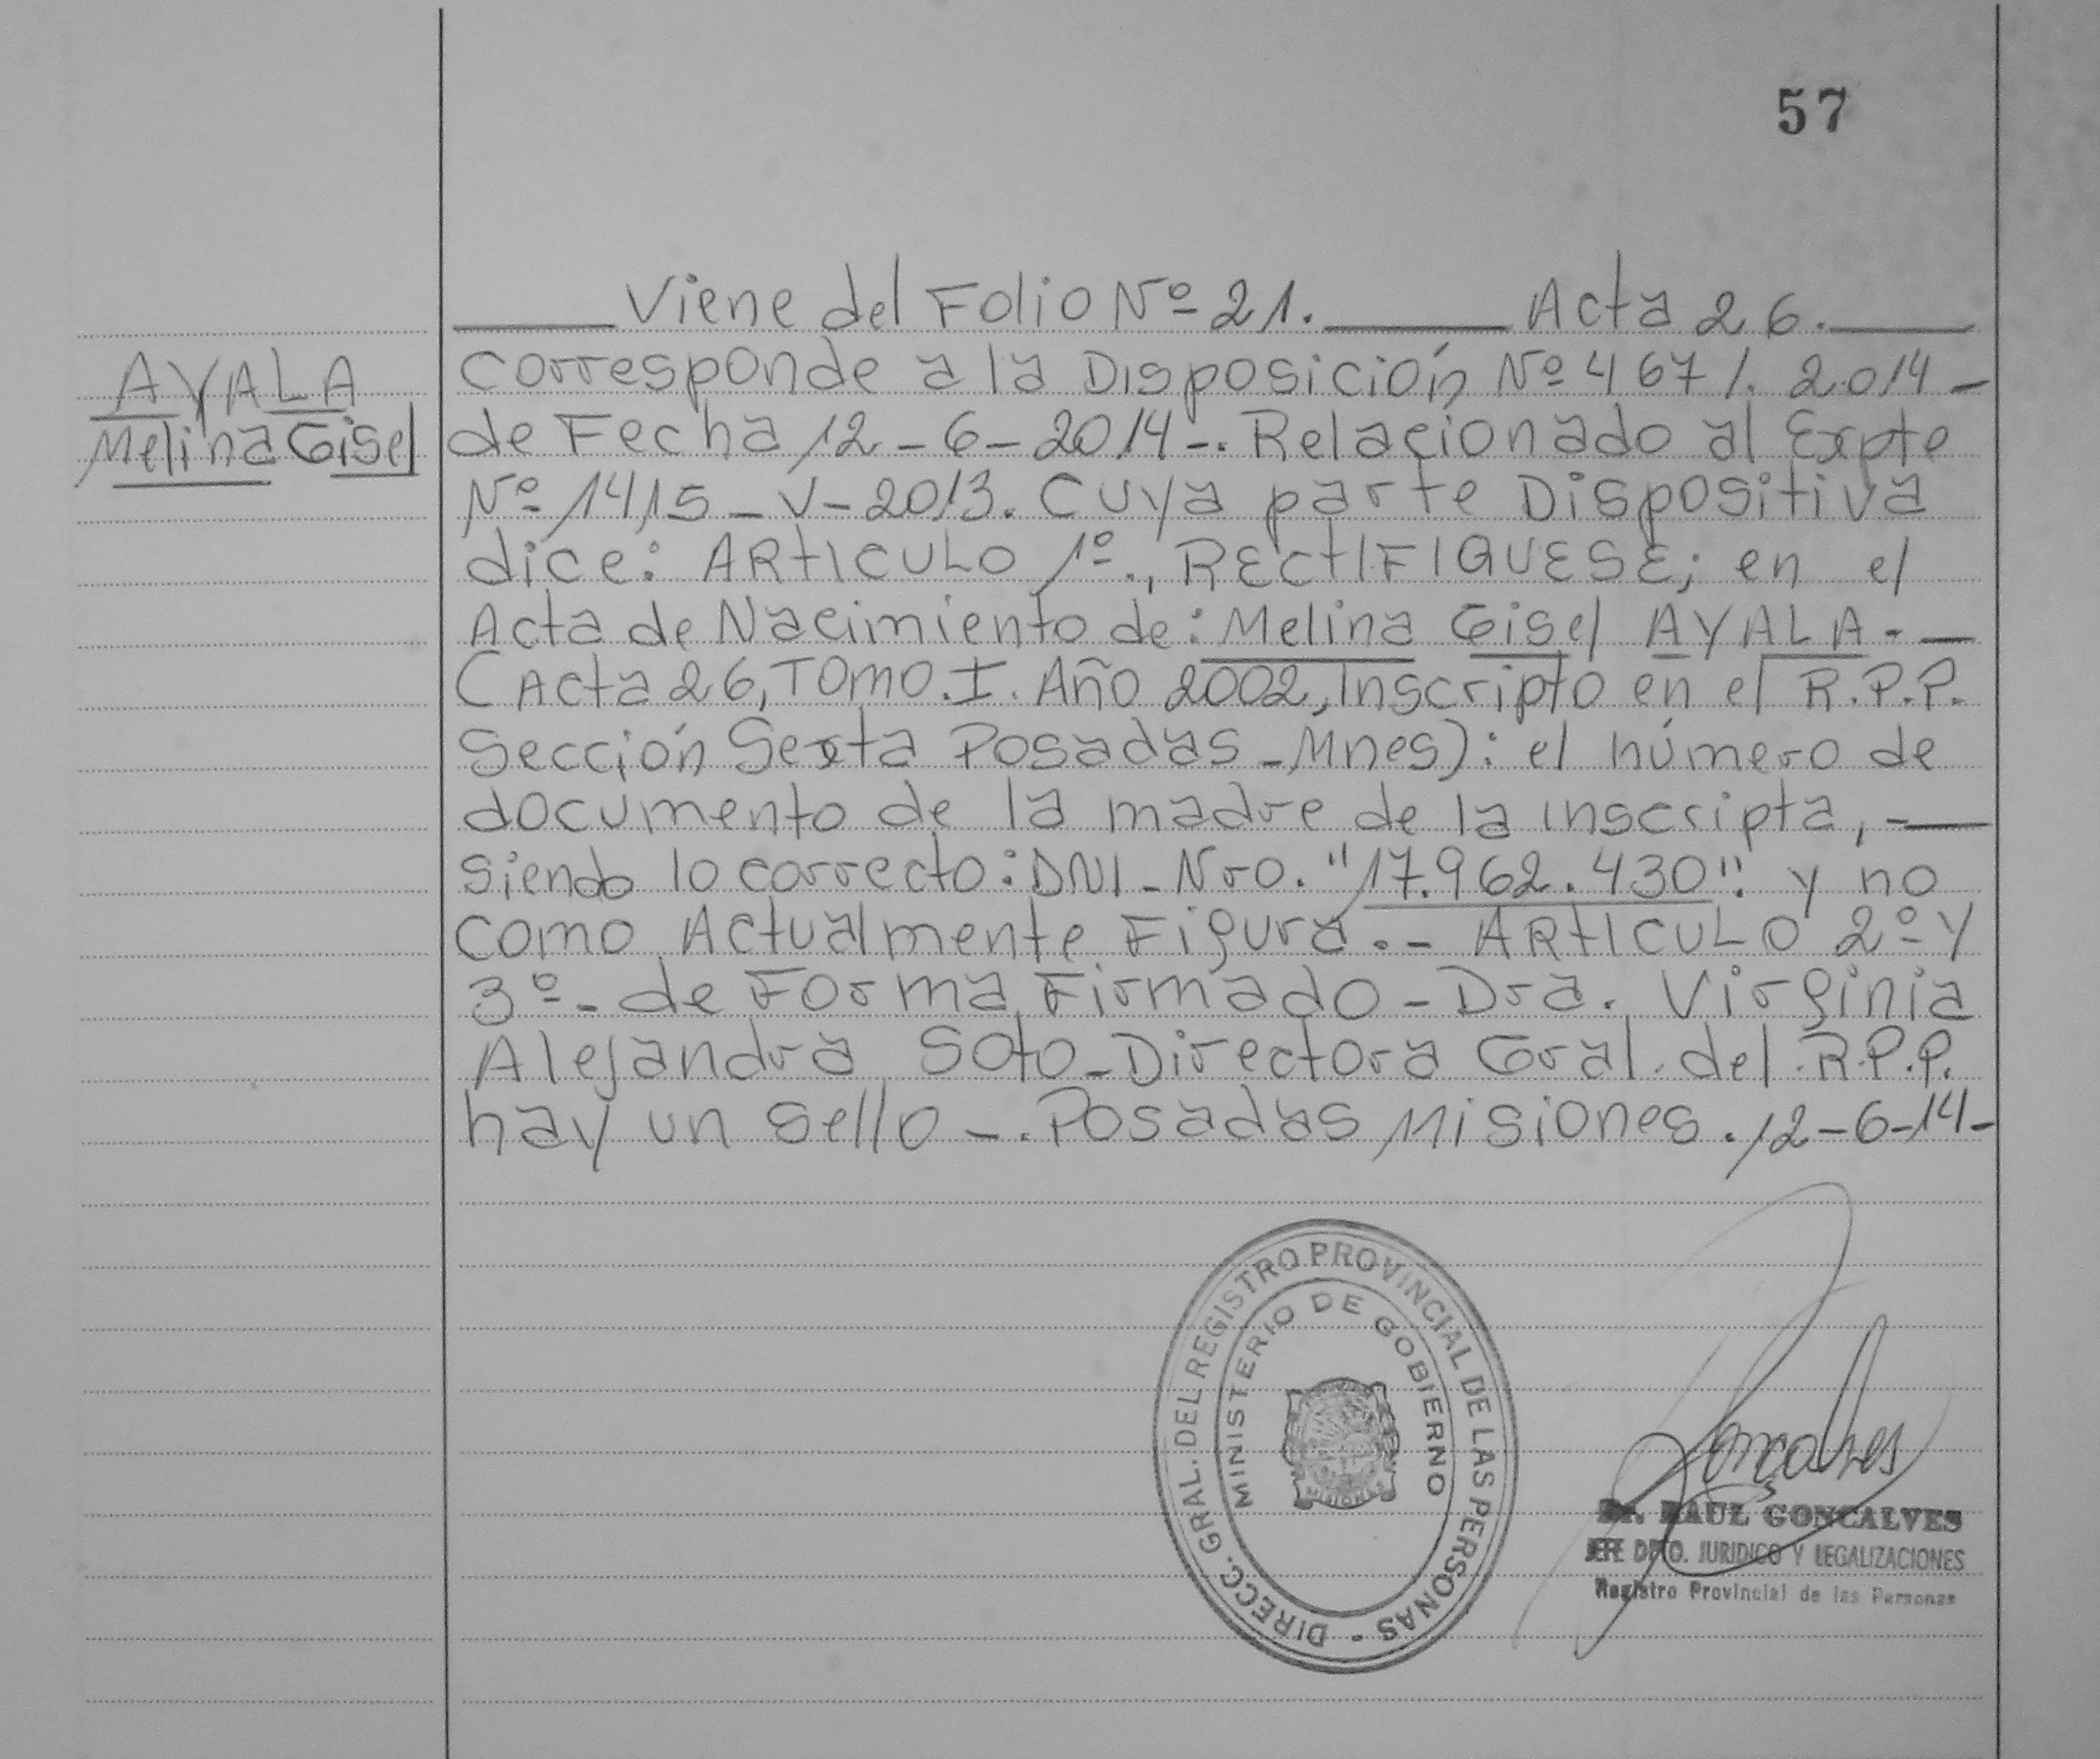 57
____ Viene del Folio Nº 21. ____ Acta 26. ____
AYALA
Melina Gisel
Corresponde a la Disposición Nº 467/. 2014 -
de Fecha 12-6-2014-. Relacionado al Expte
Nº 1415-V-2013. Cuya parte Dispositiva
dice: ARtICULO 1º., RECtIFIQUESE; en el
Acta de Nacimiento de: Melina Gisel AYALA.-
(Acta 26, TOmO. I. Año 2002, Inscripto en el R.P.P.
Sección Sexta Posadas - Mnes): el número de
documento de la madre de la inscripta, -
siendo lo correcto: DNI - Nro. "17.962.430". y no
como Actualmente Figura.- ARtICULO 2º Y
3º- de Forma Firmado - Dra. Virginia
Alejandra Soto - Directora Gral. del R.P.P.
hay un sello -. Posadas Misiones. 12-6-14-
DIRECC. GRAL. DEL REGISTRO PROVINCIAL DE LAS PERSONAS -
MINISTERIO DE GOBIERNO
MISIONES
Goncalves
Dr. RAUL GONCALVES
JEFE DPTO. JURIDICO Y LEGALIZACIONES
Registro Provincial de las Personas